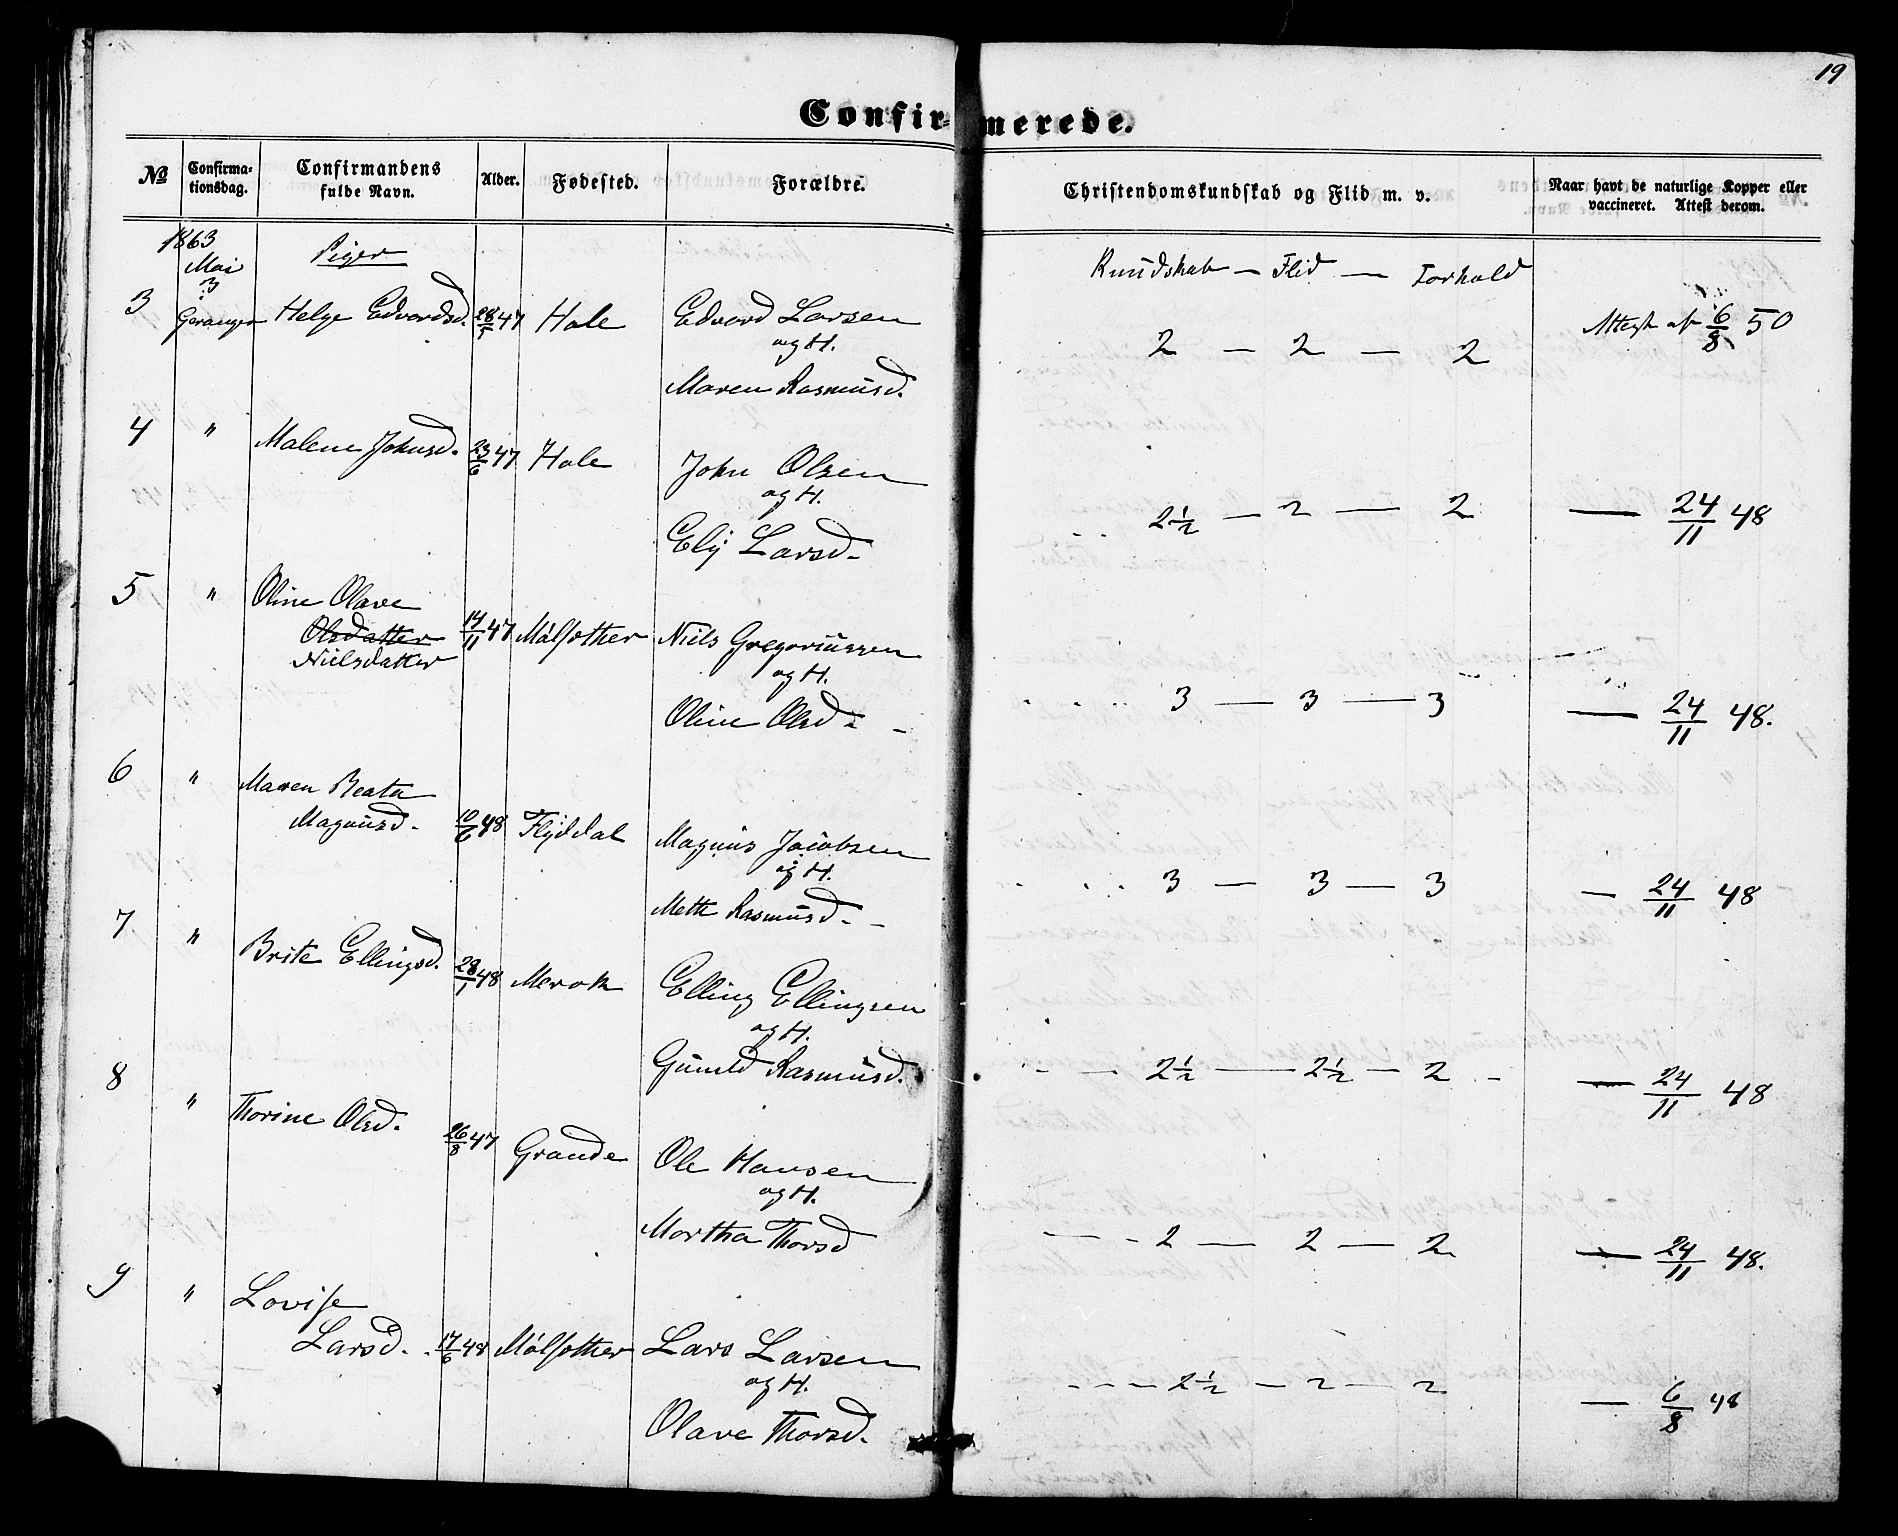 19
Confirmerede.
No Confirmationsdag. Confirmandens fulde Navn. Alder. Fødested. Forældre. Christendomskundskab og Flid m. v. Naar havt de naturlige Kopper eller vaccineret. Attest derom.
1863
Mai
3
Piger
Kundskab — Flid — Forhold
3 Geranger Helge Edvardsd. 28/5 47 Hole Edvard Larsen
og H.
Maren Rasmusd.
2 — 2 — 2 Attest af 6/8 50
4 " Malene Johnsd. 23/6 47 Hole John Olsen
og H.
Elij Larsd.
2½ — 2 — 2 — 24/11 48
5 " Oline Olave
Olsdatter
Nielsdatter
14/11 47 Målsæther Niels Gregoriussen
og H.
Oline Olsd.
3 — 3 — 3 — 24/11 48.
6 " Maren Beata
Magnusd. 10/6 48 Flyddal Magnus Jacobsen
og H.
Mette Rasmusd.
3 — 3 — 3 — 24/11 48
7 " Brite Ellingsd. 28/1 48 Merok Elling Ellingsen
og H.
Gunild Rasmusd.
2½ — 2½ — 2 — 24/11 48
8 " Thorine Olsd. 26/8 47 Grande Ole Hansen
og H.
Martha Thorsd
2 — 2 — 2 — 24/11 48.
9 " Lovise
Larsd. 17/6 48 Målsæther Lars Larsen
og H.
Olave Thorsd.
2½ — 2 — 2 — 6/8 48